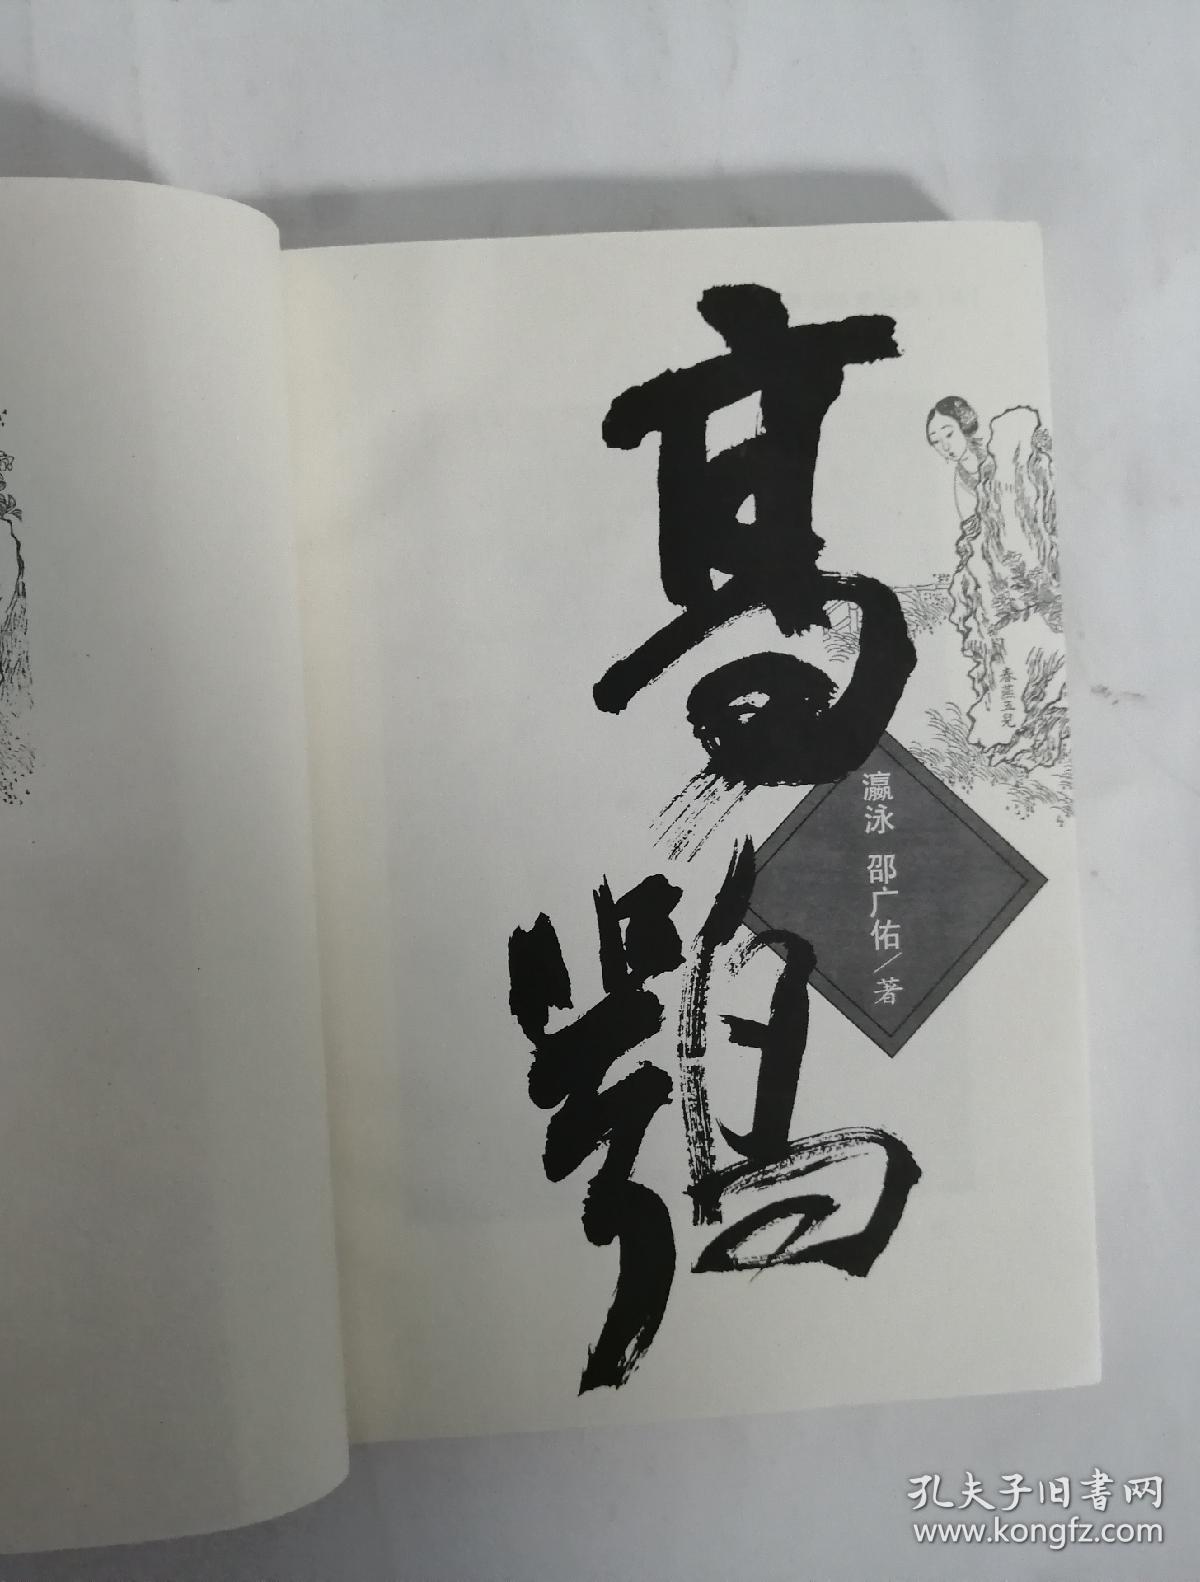 高鹗
瀛泳 邵广佑／著
春燕五兒
孔夫子旧書网
www.kongfz.com